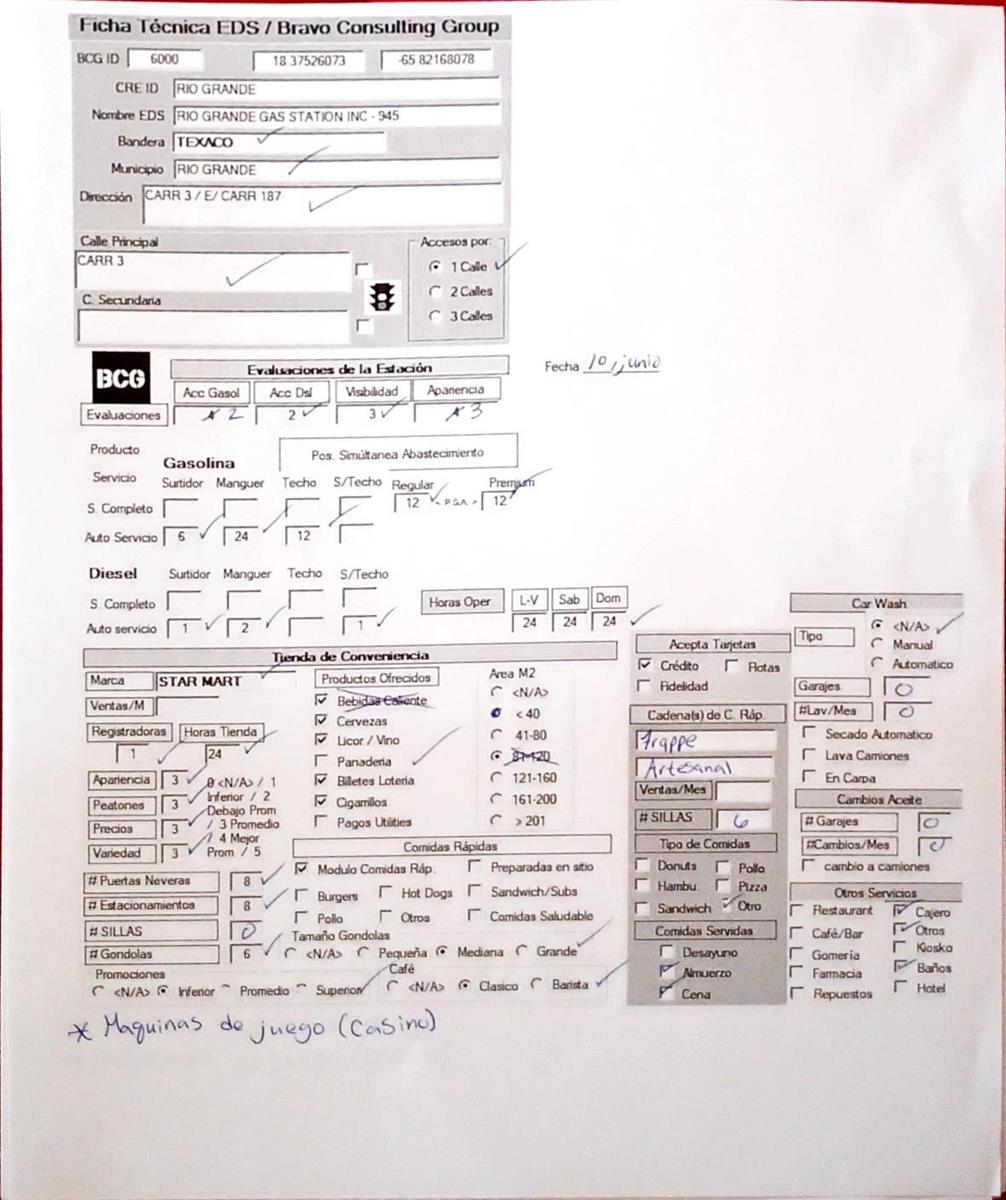 Ficha Técnica EDS / Bravo Consulting Group
BCG ID 6000 18 37526073 -65 82168078
CRE ID RIO GRANDE
Nombre EDS RIO GRANDE GAS STATION INC - 945
Bandera TEXACO
Municipio RIO GRANDE
Dirección CARR 3 / E/ CARR 187
Calle Principal
CARR 3
C. Secundaria
Accesos por:
1 Calle
2 Calles
3 Calles
BCG
Evaluaciones de la Estación
Fecha 10, junio
Acc Gasol Acc Dsl Visibilidad Apariencia
Evaluaciones 2 2 3 3
Producto
Servicio
Gasolina
Pos. Simúltanea Abastecimiento
Surtidor Manguer Techo S/Techo Regular Premium
S. Completo 12 < P.S.A. > 12
Auto Servicio 6 24 12
Diesel Surtidor Manguer Techo S/Techo
S. Completo
Auto servicio 1 2 1
Horas Oper. L-V Sab Dom
24 24 24
Tienda de Conveniencia
Marca STAR MART
Ventas/M
Registradoras Horas Tienda
1 24
Apariencia 3
Peatones 3
Precios 3
Variedad 3
0 <N/A> / 1
Inferior / 2
Debajo Prom
/ 3 Promedio
/ 4 Mejor
Prom / 5
# Puertas Neveras 8
# Estacionamientos 8
# SILLAS 0
# Gondolas 6
Productos Ofrecidos
Bebidas Caliente
Cervezas
Licor / Vino
Panaderia
Billetes Loteria
Cigarrillos
Pagos Utilities
Area M2
<N/A>
< 40
41-80
81-120
121-160
161-200
> 201
Comidas Rápidas
Modulo Comidas Ráp. Preparadas en sitio
Burgers Hot Dogs Sandwich/Subs
Pollo Otros Comidas Saludable
Tamaño Gondolas
<N/A> Pequeña Mediana Grande
Promociones
<N/A> Inferior Promedio Superior
Café
<N/A> Clasico Barista
Acepta Tarjetas
Crédito Flotas
Fidelidad
Cadena(s) de C. Ráp.
Frappe
Artesanal
Ventas/Mes
# SILLAS 6
Tipo de Comidas
Donuts Pollo
Hambu. Pizza
Sandwich Otro
Comidas Servidas
Desayuno
Almuerzo
Cena
Car Wash
Tipo
<N/A>
Manual
Automatico
Garajes 0
#Lav/Mes 0
Secado Automatico
Lava Camiones
En Carpa
Cambios Aceite
# Garajes 0
#Cambios/Mes 0
cambio a camiones
Otros Servicios
Restaurant Cajero
Café/Bar Otros
Gomeria Kiosko
Farmacia Baños
Repuestos Hotel
* Maquinas de juego (Casino)